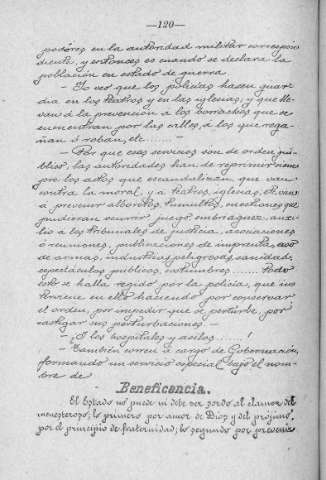 —120—
poderes en la autoridad militar correspon
diente, y entonces es cuando se declara la
población en estado de guerra
— Yo veo que los policías hacen guar
dia en los teatros y en las iglesias, y que lle
van á la prevención á los borrachos que se
encuentran por las calles, á los que rega
ñan ó roban, etc.......—
— Por que esos servicios son de orden pú
blico, las autoridades han de reprimir siem
pre los actos que escandalizan, que van
contra la moral, y á teatros, iglesias, &, van
á prevenir alborotos, tumultos, cuestiones que
pudieran ocurrir; juego, embriaguez, auxi
lio á los tribunales de justicia, asociaciones
ó reuniones, publicaciones de imprenta, uso
de armas, industrias peligrosas, sanidad,
espectáculos públicos, costumbres....... Todo
esto se halla regido por la policía, que in
terviene en ello haciendo por conservar
el orden, por impedir que se perturbe, por
castigar sus perturbaciones —
— Y los hospitales y asilos....!
— También corren á cargo de Gobernación,
formando un servicio especial bajo el nom
bre de
Beneficencia.
El Estado no puede ni debe ser sordo al clamor del
menesteroso; lo primero por amor de Dios y del prójimo,
por el principio de fraternidad; lo segundo por prevenir